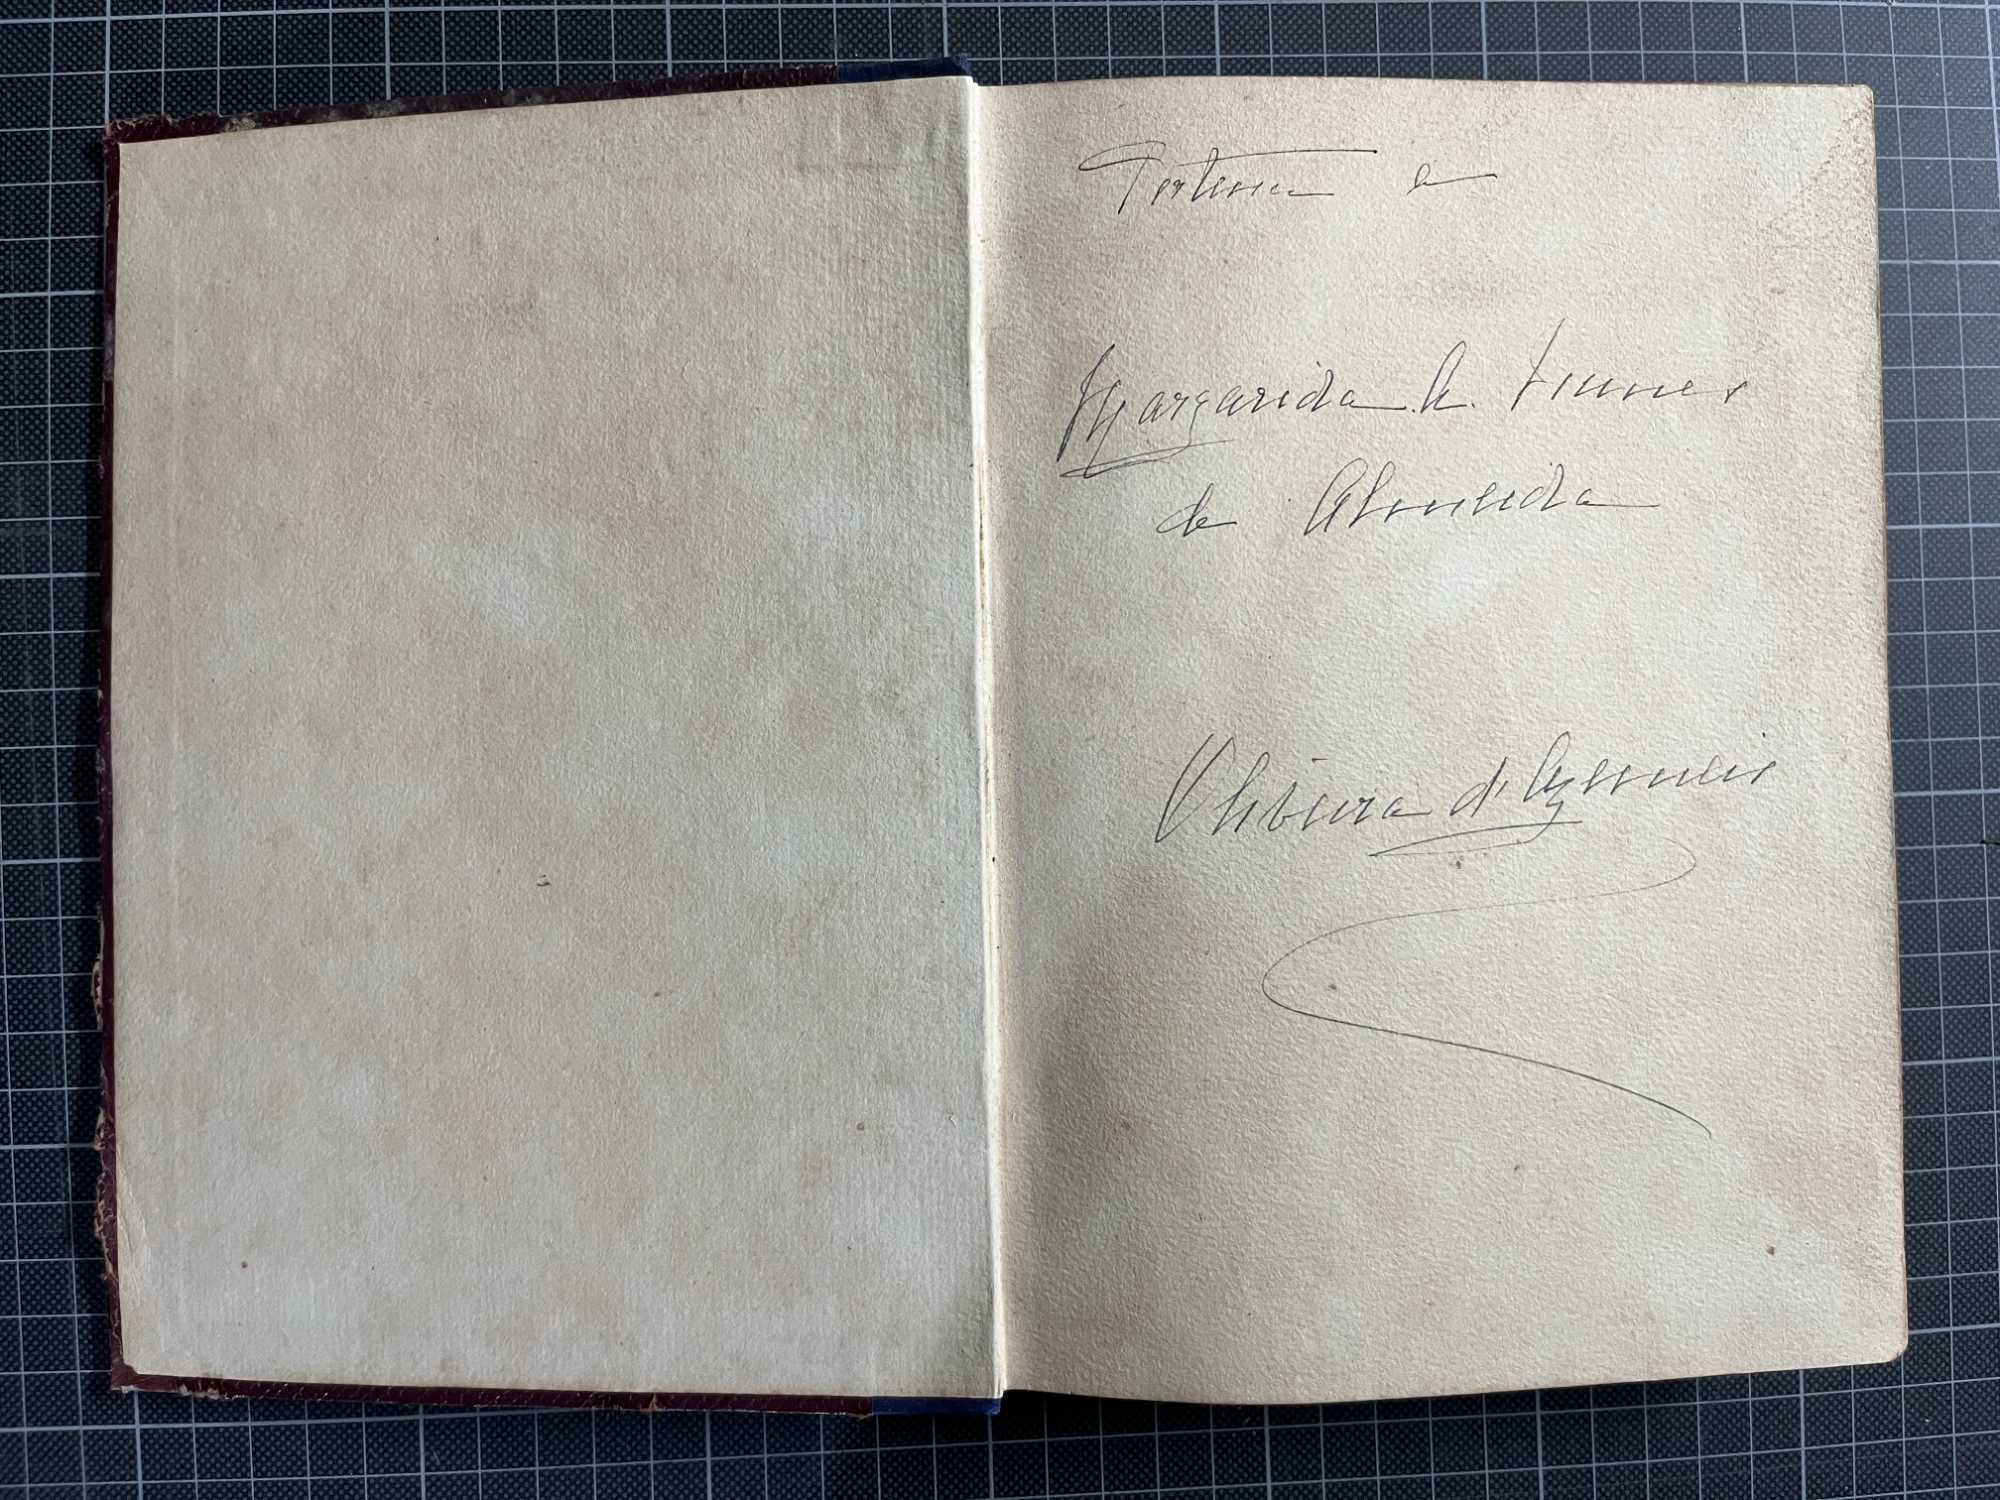 Pertence a
Margarida A. Nunes
de Almeida
Oliveira d'Azemeis